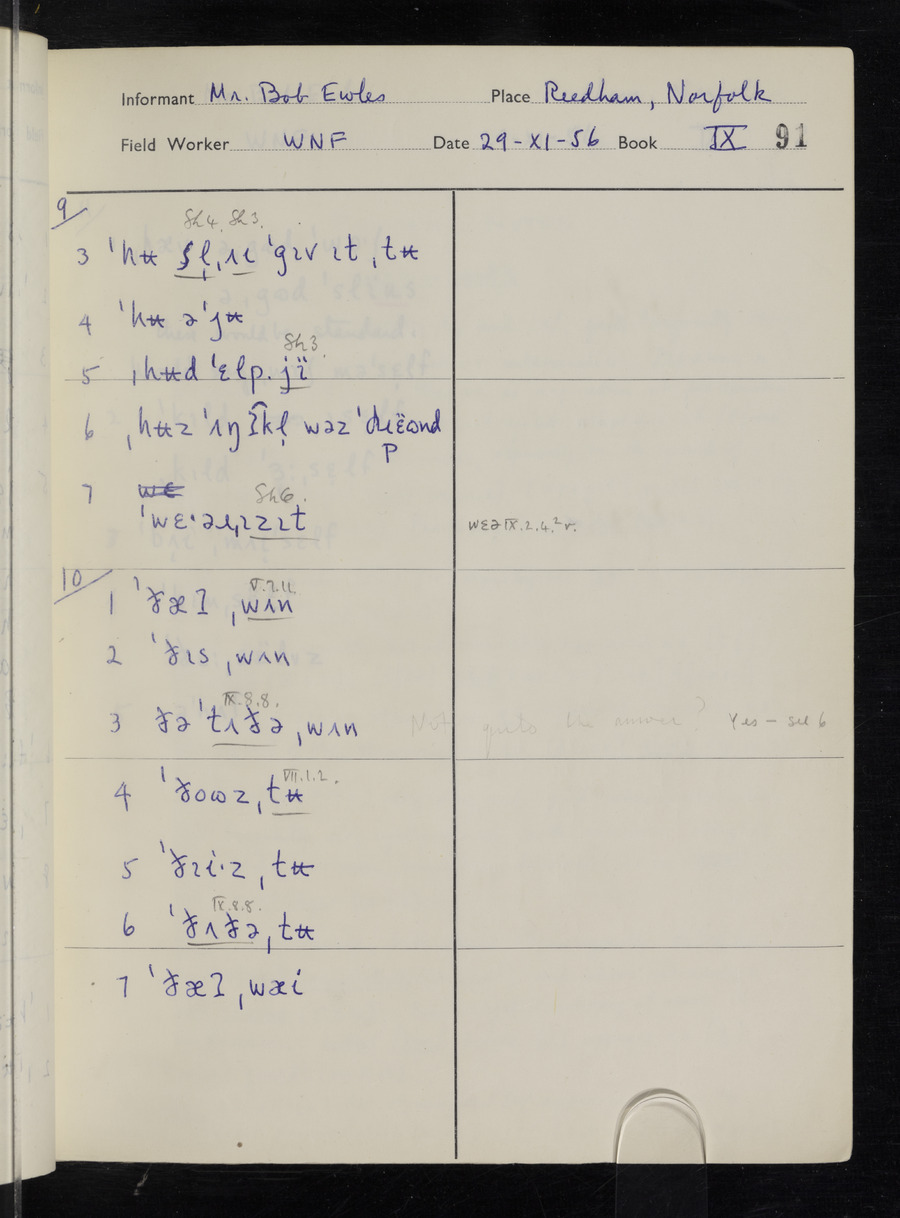 Informant Mr. Bob Ewles Place Reedham, Norfolk
Field Worker WNF Date 29-XI-56 Book IX 91
9
Sh4. Sh3.
3 ˈhʉ ʃl̩ ˌɪɪ ˈgɪv ɪt ˌtʉ
4 ˈhʉ əˈjʉ
Sh3.
5 ˌhʉd ˈɛlp. jï
6 ˌhʉz
wəz
P
7
Sh6.
wɛə IX.2.4.² r.
10
V.7.11.
1 ˈðæʔ ˌwʌn
2 ˈðɪs ˌwʌn
IX.8.8.
3 ðəˈtʌðə ˌwʌn Not quite the answer? Yes – see 6
VII.1.2.
4 ˈðoʊz ˌtʉ
5 ˈðɪi·z ˌtʉ
IX.8.8.
6 ˈðʌðə ˌtʉ
7 ˈðæʔ ˌwæi